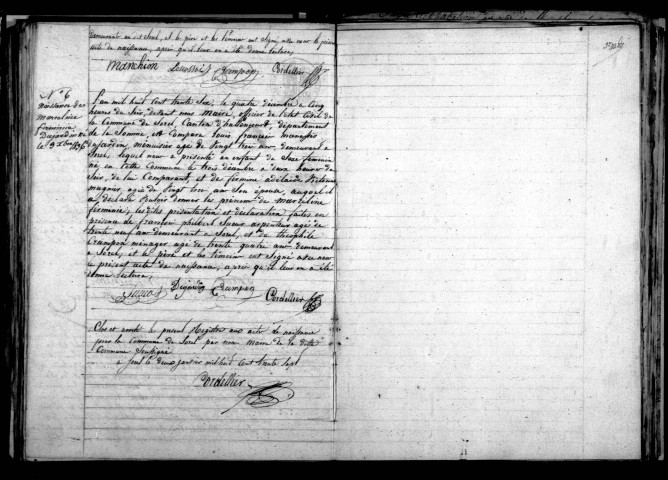 demeurant en cet Sorel, et le père et les témoins ont Signé avec nous le présent
acte de naissance, après qu'il leur en a été donné lecture,
Manchion Crampon Cordellier
N.º 6
Naissance de
Marceline
firminie
Dujardin
le 3 Xbre 1836
L'an mil huit Cent trente Six, le quatre décembre à Cinq
heures du Soir, devant nous Maire, officier de l'état Civil de
la Commune de Sorel, Canton d'hallencourt, département
de la Somme, est Comparu Louis françois
Dujardin, ménuisier agé de Vingt trois ans, demeurant à
Sorel, lequel nous a présenté un Enfant de Sexe feminin
né en cette Commune le trois décembre à deux heures du
Soir, de lui Comparant, et de firmine adélaïde
magnier agée de Vingt trois ans Son épouse, auquel il
a déclaré Vouloir donner les prénoms de marceline
firminie; lesdites présentation et déclaration faites en
présence de françois Sueur arpenteur agé de
trente neuf ans demeurant à Sorel, et de théophile
Crampon ménager agé de trente quatre ans demeurant
à Sorel, et le père et les témoins ont Signé avec nous
le présent acte de naissance, après qu'il leur en a été
donné lecture,
Sueur Dujardin Crampon Cordellier
Clos et arrêté le présent Registre aux actes de naissance
pour la Commune de Sorel par nous Maire de la dite
Commune Soussigné
à Sorel le deux janvier mil huit Cent trente Sept
Cordellier